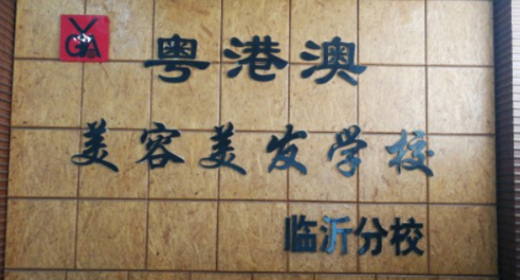 YGA
粤港澳
美容美发学校
临沂分校